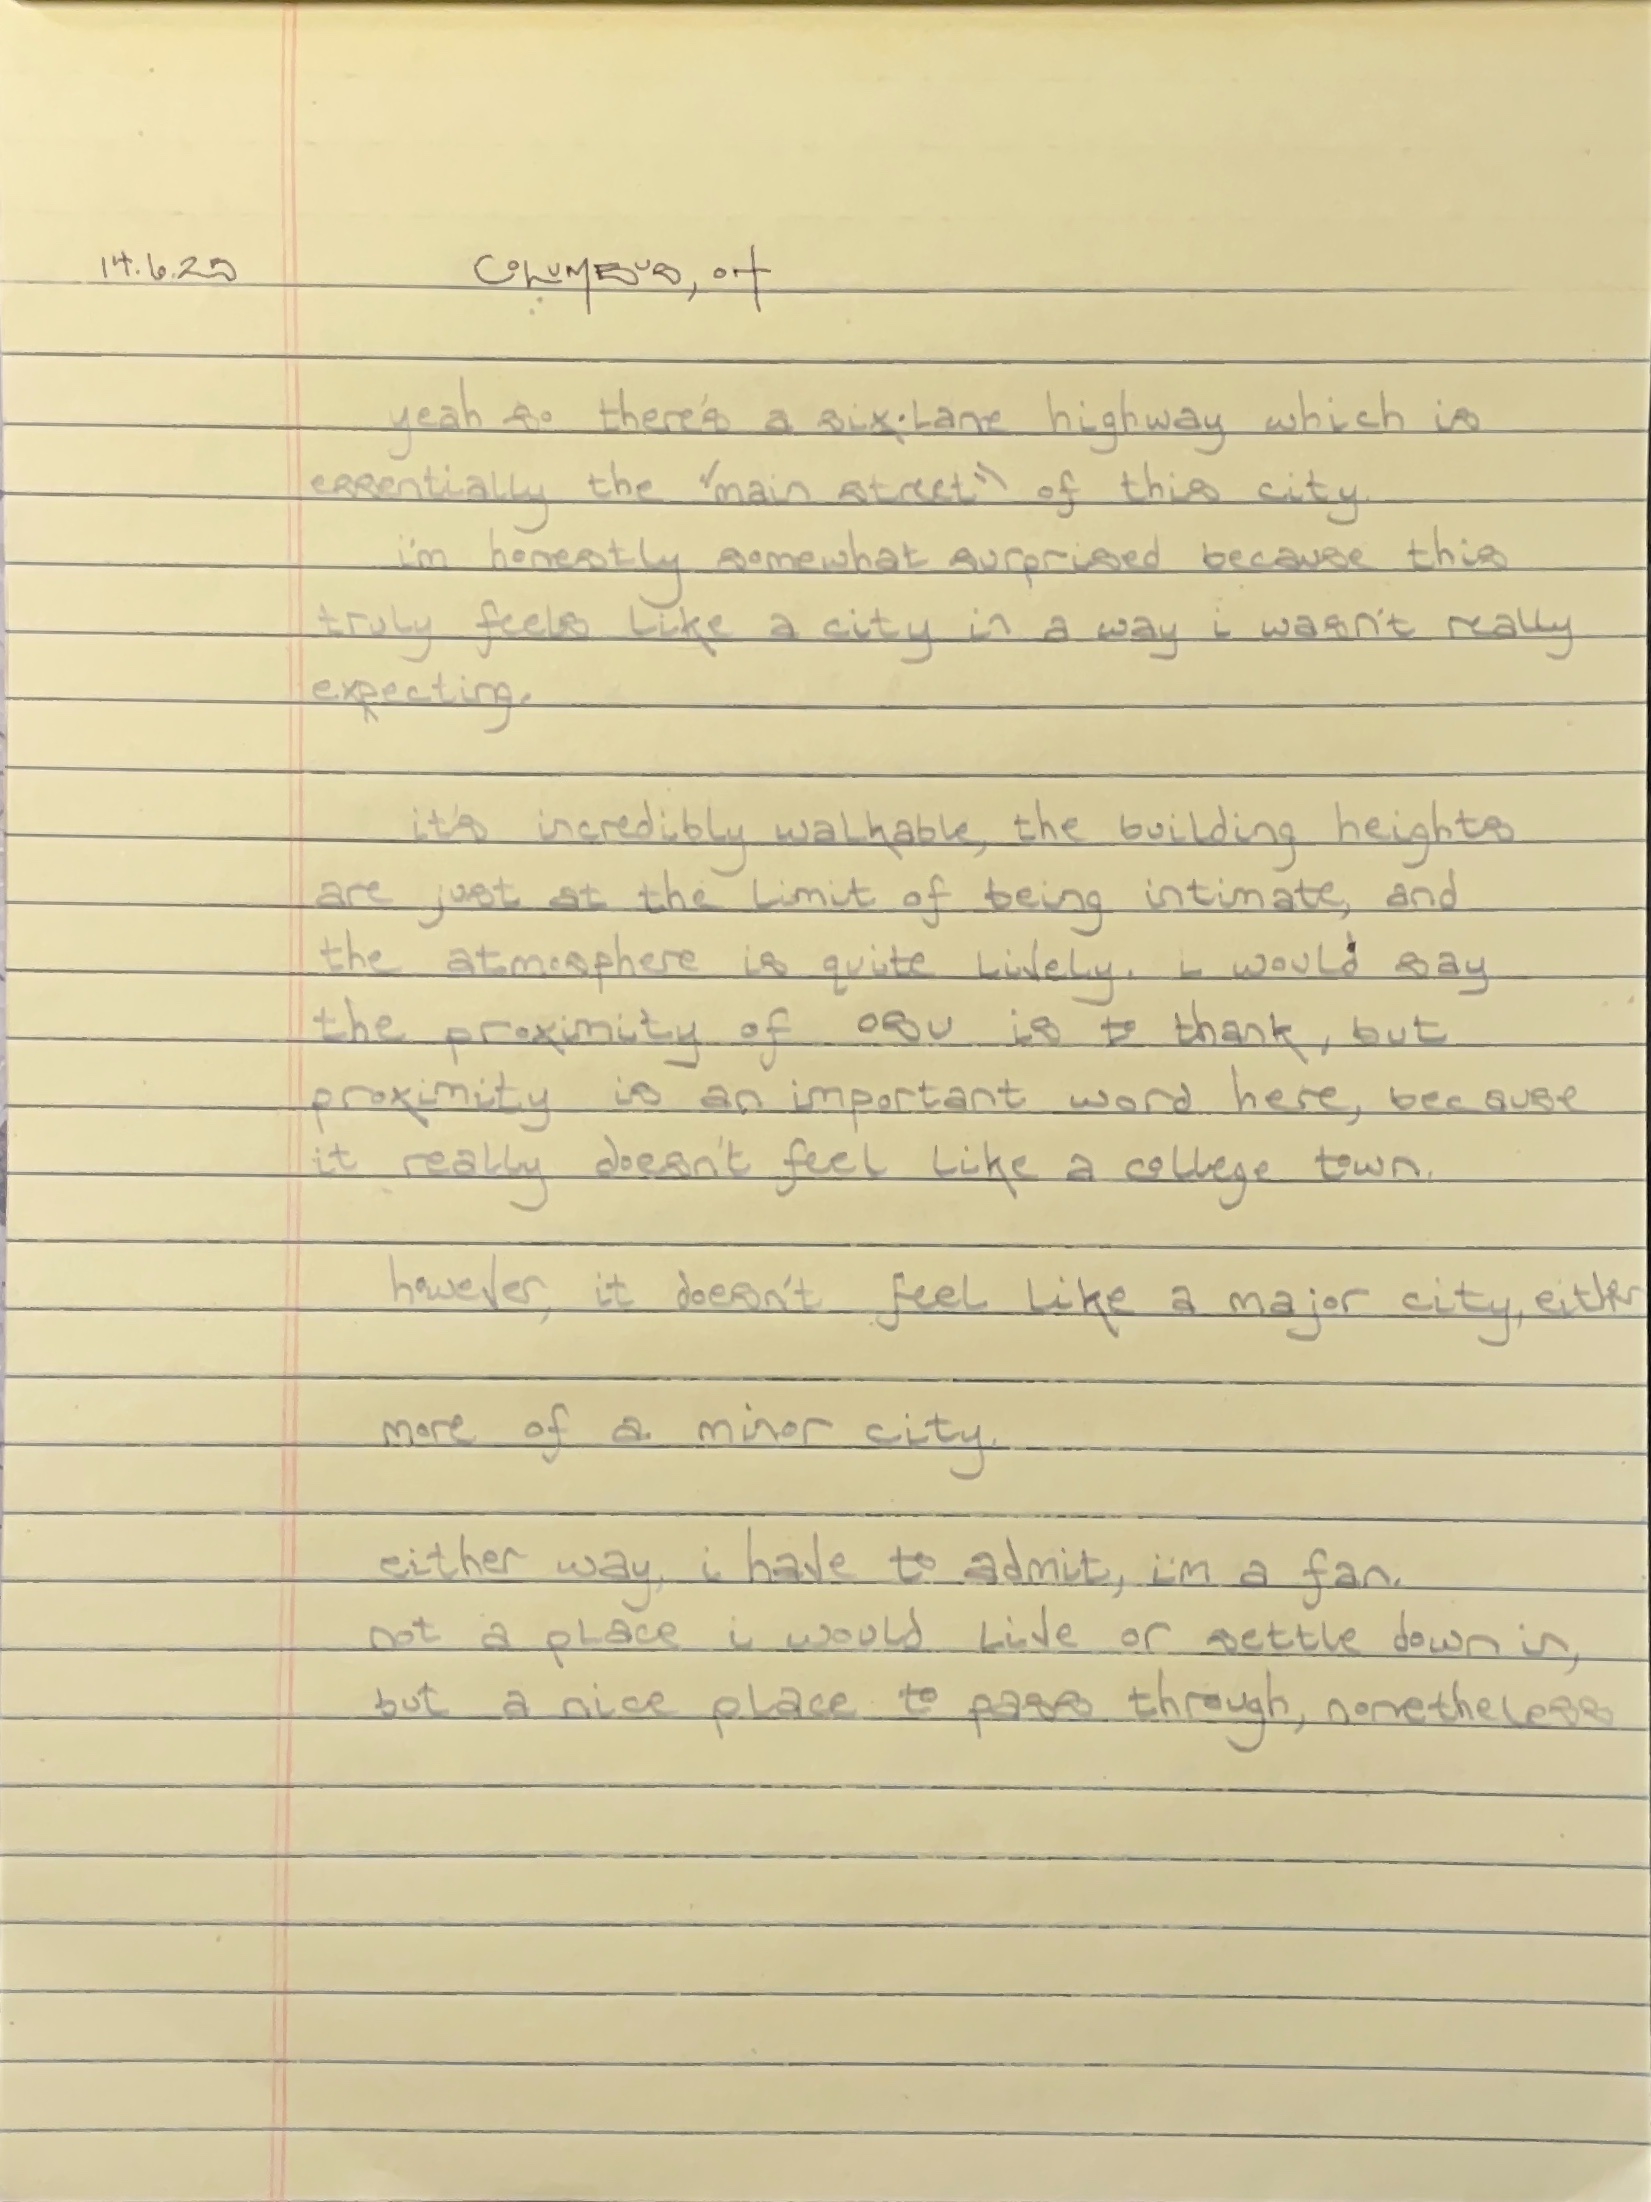 14.6.25 COLUMBUS, OH
yeah so there's a six-lane highway which is
essentially the "main street" of this city.
i'm honestly somewhat surprised because this
truly feels like a city in a way i wasn't really
expecting.
it's incredibly walkable, the building heights
are just at the limit of being intimate, and
the atmosphere is quite lively. i would say
the proximity of osu is to thank, but
proximity is an important word here, because
it really doesn't feel like a college town.
however, it doesn't feel like a major city, either
more of a minor city.
either way, i have to admit, i'm a fan.
not a place i would live or settle down in,
but a nice place to pass through, nonetheless